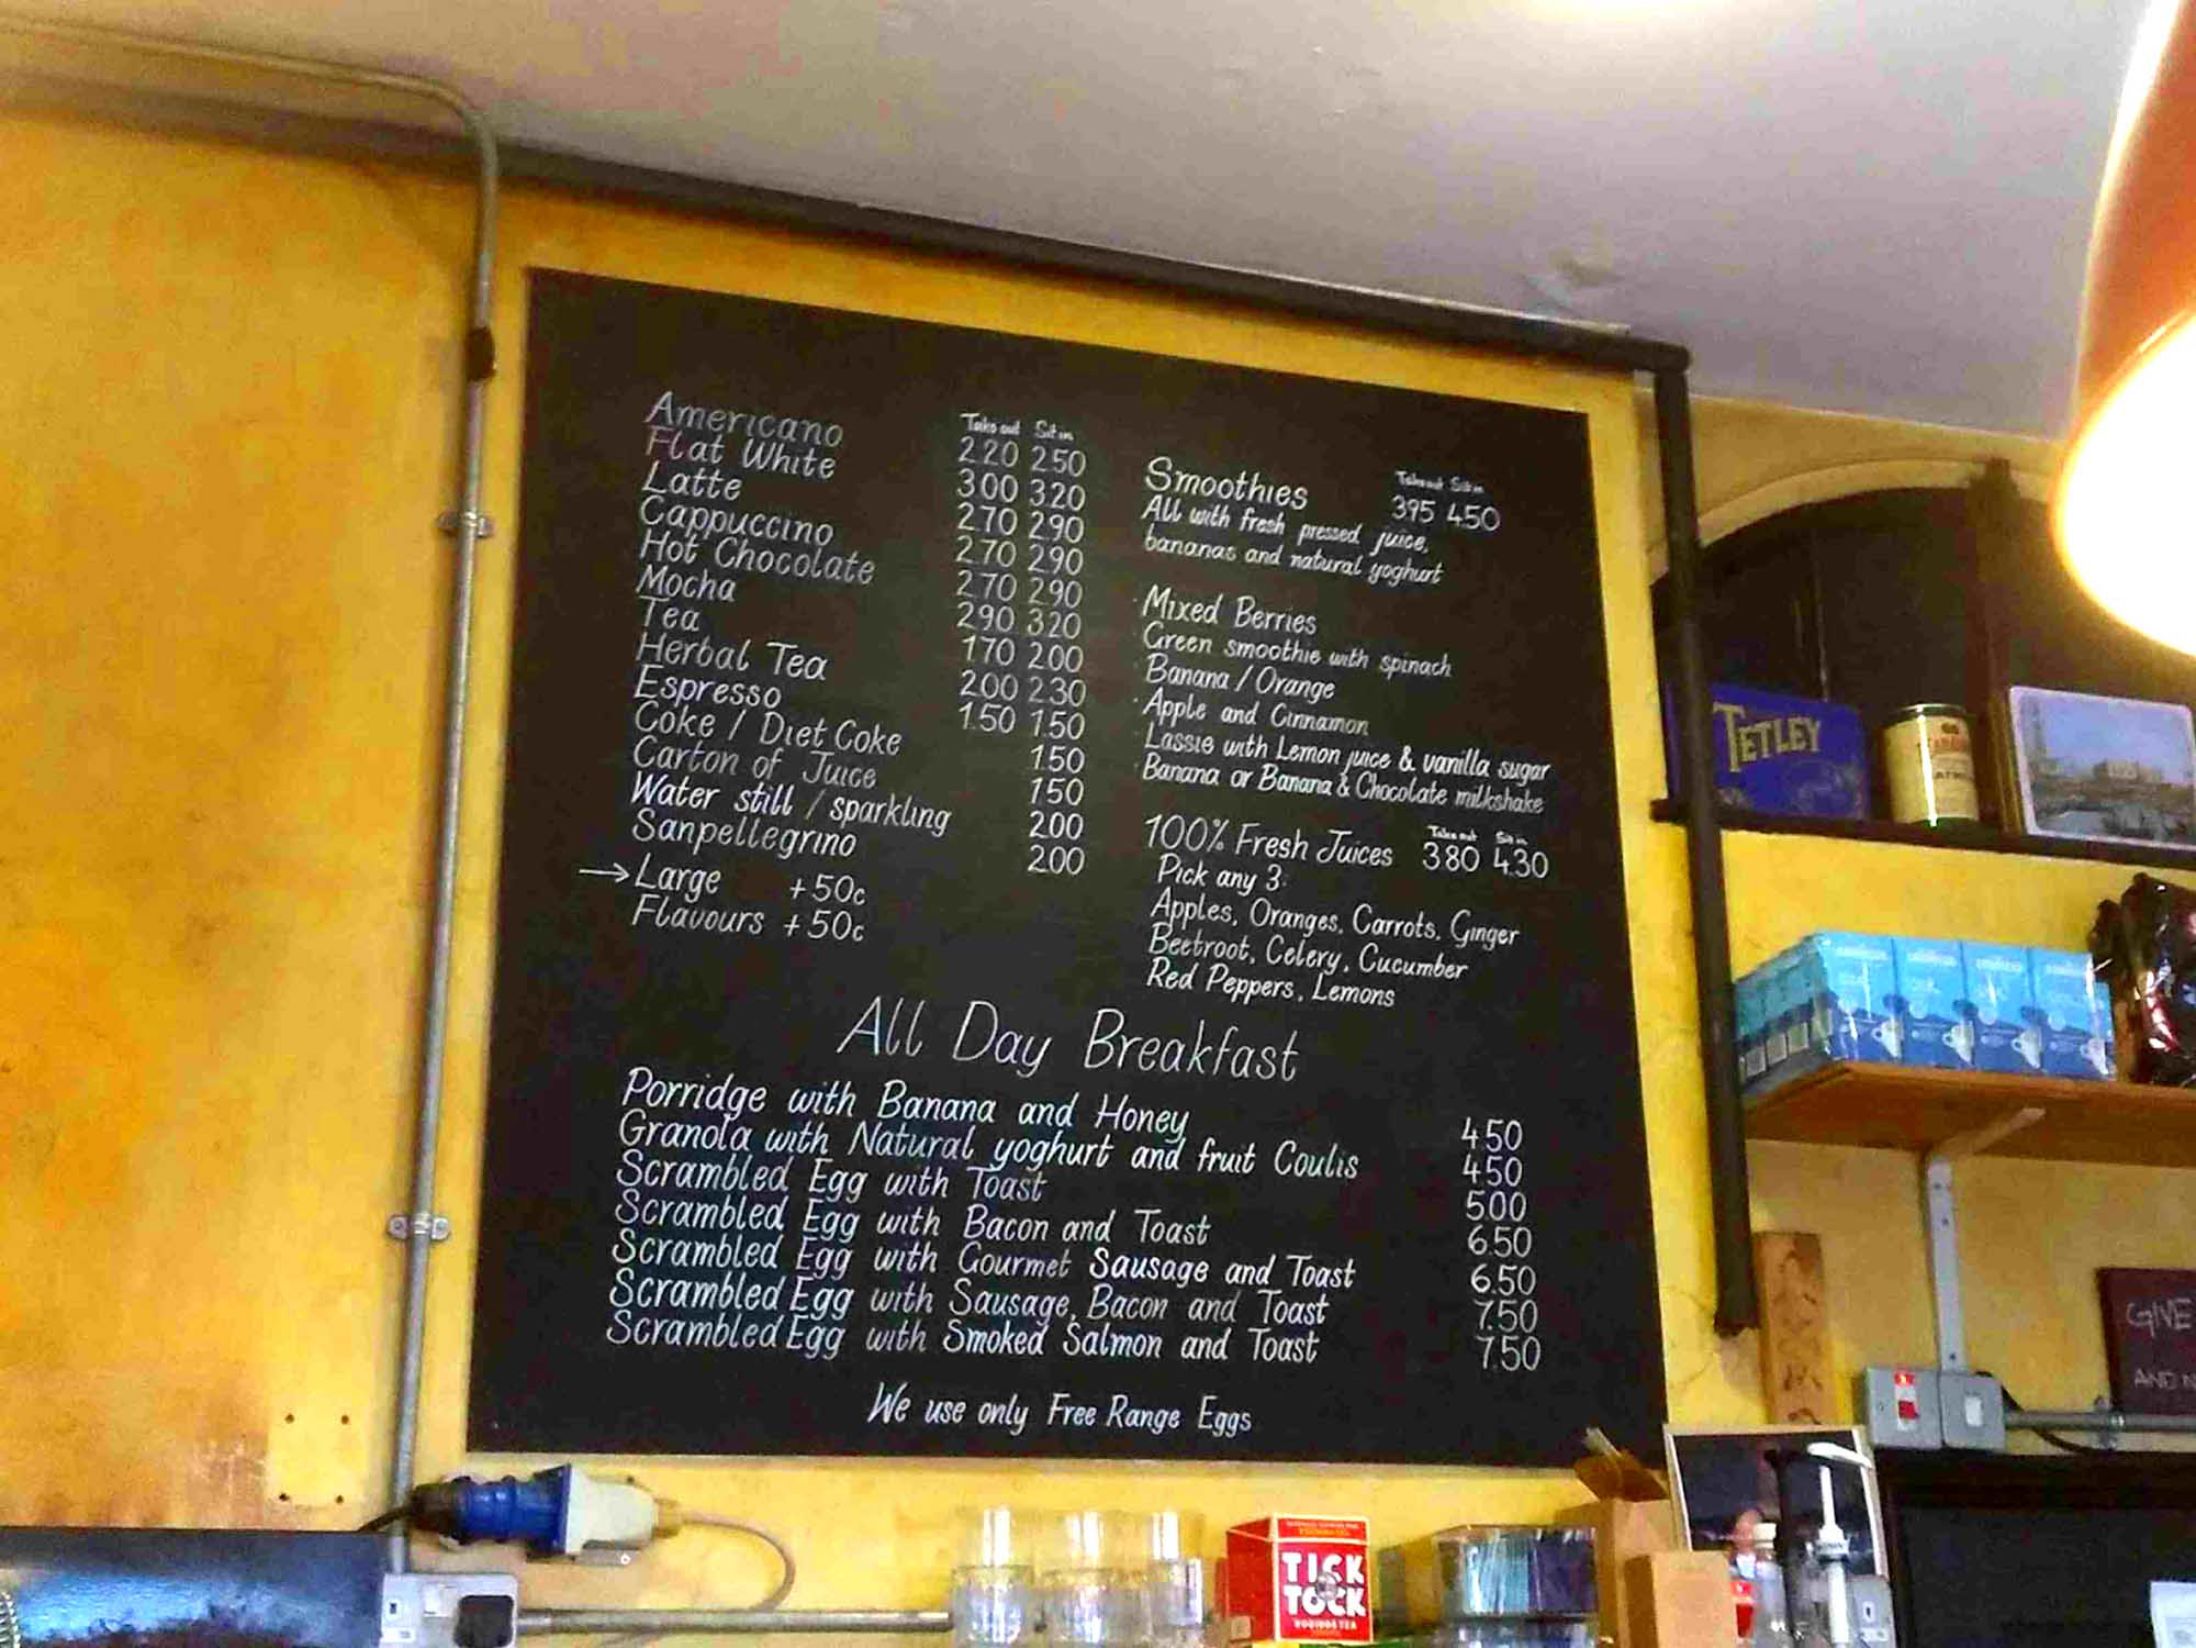 Take out Sit in
Americano 2.20 2.50
Flat White 3.00 3.20
Latte 2.70 2.90
Cappuccino 2.70 2.90
Hot Chocolate 2.70 2.90
Mocha 2.90 3.20
Tea 1.70 2.00
Herbal Tea 2.00 2.30
Espresso 1.50 1.50
Coke / Diet Coke 1.50
Carton of Juice 1.50
Water still / sparkling 2.00
Sanpellegrino 2.00
→ Large +50c
Flavours +50c
Take out Sit in
Smoothies 3.95 4.50
All with fresh pressed juice,
bananas and natural yoghurt
· Mixed Berries
· Green smoothie with spinach
· Banana / Orange
· Apple and Cinnamon
· Lassie with Lemon juice & vanilla sugar
Banana or Banana & Chocolate milkshake
Take out Sit in
100% Fresh Juices 3.80 4.30
Pick any 3:
Apples, Oranges, Carrots, Ginger
Beetroot, Celery, Cucumber
Red Peppers, Lemons
All Day Breakfast
Porridge with Banana and Honey 4.50
Granola with Natural yoghurt and fruit Coulis 4.50
Scrambled Egg with Toast 5.00
Scrambled Egg with Bacon and Toast 6.50
Scrambled Egg with Gourmet Sausage and Toast 6.50
Scrambled Egg with Sausage, Bacon and Toast 7.50
Scrambled Egg with Smoked Salmon and Toast 7.50
We use only Free Range Eggs
TETLEY
GIVE
AND N
TICK
TOCK
ROOIBOS TEA